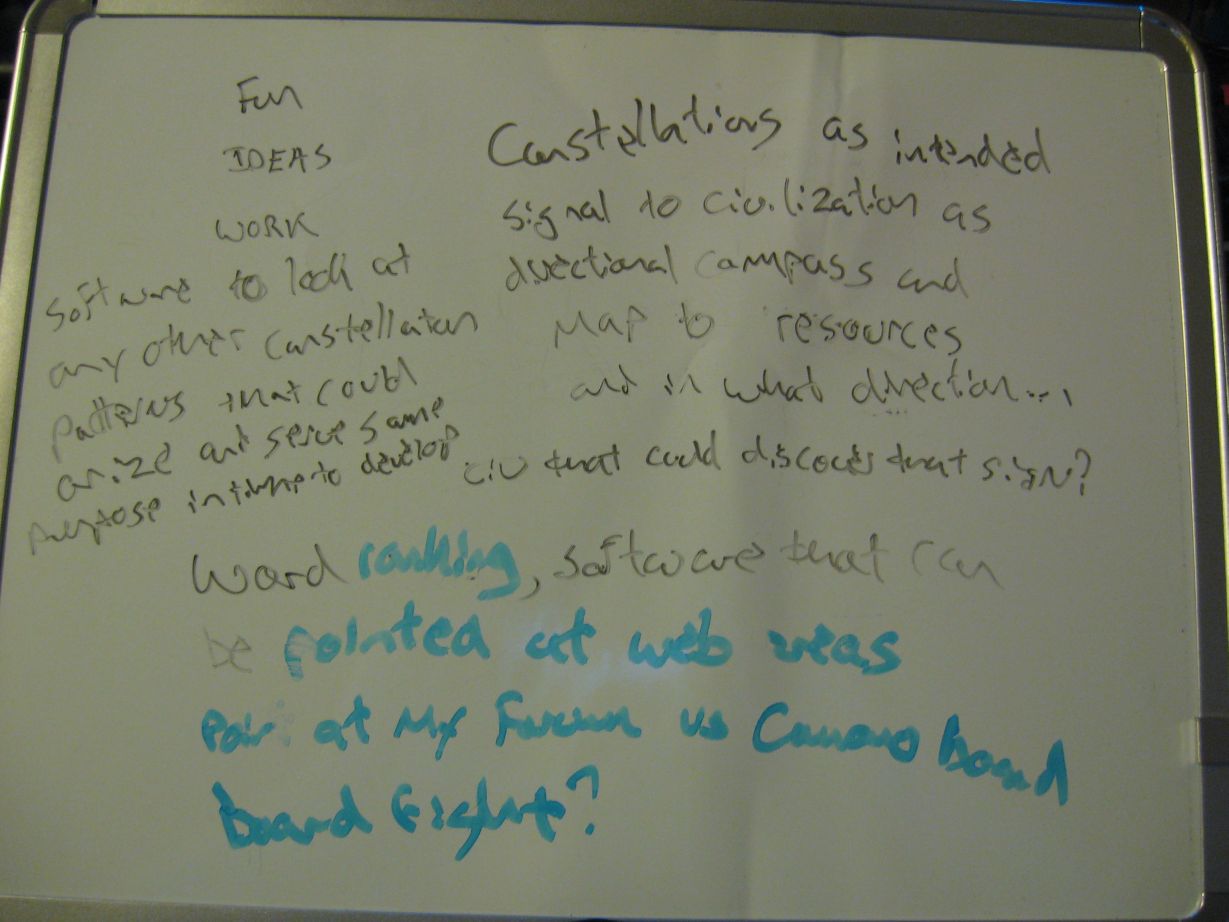 Fun
IDEAS
WORK
software to look at
any other constellation
patterns that could
arize and serve same
purpose in time to develop
Constellations as intended
signal to civilization as
directional compass and
Map to resources
and in what direction...,
civ that could discover that sign?
Word ranking, software that can
be pointed at web areas
at my Forum vs Board
board fight?